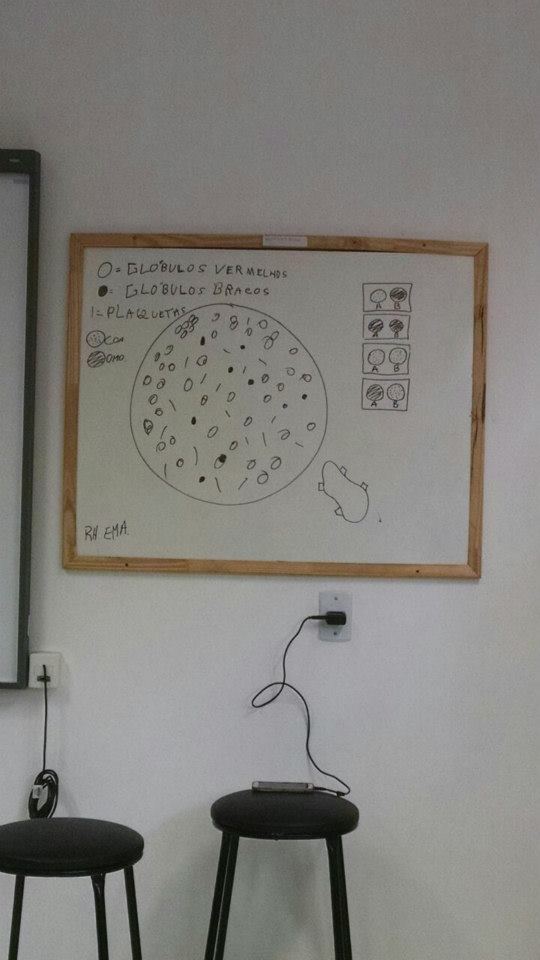 O = GLÓBULOS VERMELHOS
● = GLÓBULOS BRACOS
I = PLAQUETAS
COA
OMO
A B
A B
A B
A B
RH. EMA.